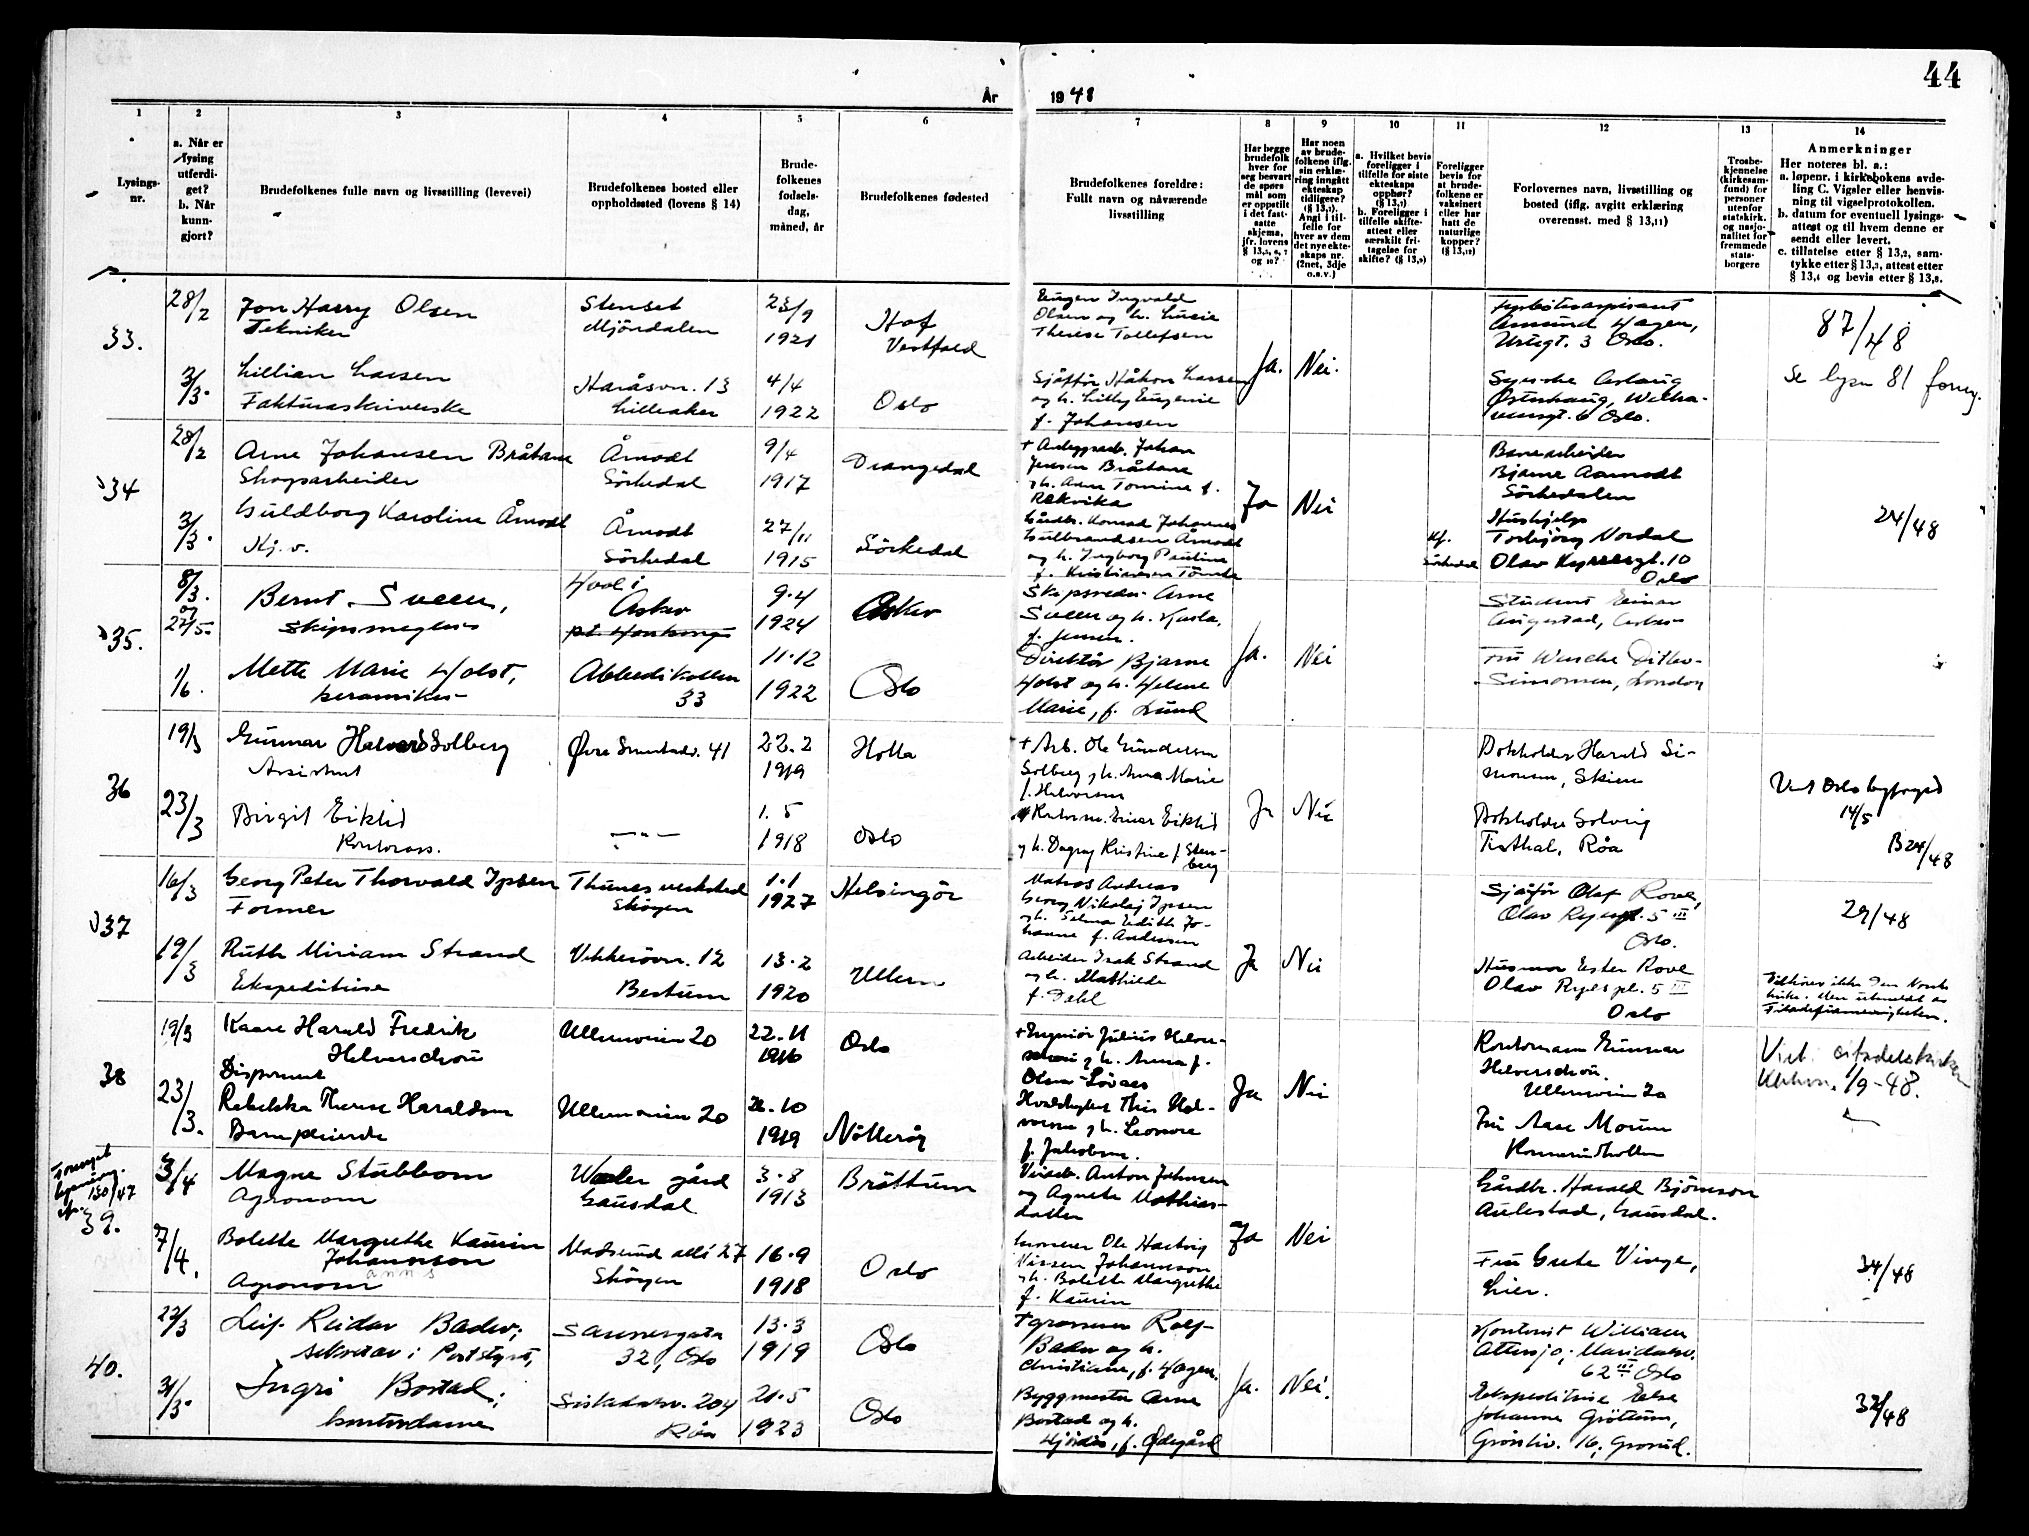 44
År 1948
1
Lysings-
nr.
2
a. Når er
lysing
utferdi-
get?
b. Når
kunn-
gjort?
3
Brudefolkenes fulle navn og livsstilling (levevei)
4
Brudefolkenes bosted eller
oppholdssted (lovens § 14)
5
Brude-
folkenes
fødsels-
dag,
måned, år
6
Brudefolkenes fødested
7
Brudefolkenes foreldre:
Fullt navn og nåværende
livsstilling
8
Har begge
brudefolk
hver for
seg besvart
de spørs
mål som
er oppstilt
i det fast-
satte
skjema,
jfr. lovens
9
Har noen
av brude-
folkene iflg.
sin erklæ-
ring inngått
ekteskap
tidligere?
Angi i til-
felle for
hver av dem
det nye ekte-
skaps nr.
(2net, 3dje
o.s.v.)
10
a. Hvilket bevis
foreligger i
tilfelle for siste
ekteskaps
opphør?
b. Foreligger i
tilfelle skifte-
attest eller
særskilt fri-
tagelse for
skifte?
11
Foreligger
bevis for
at brude-
folkene er
vaksinert
eller har
hatt de
naturlige
kopper?
12
Forlovernes navn, livsstilling og
bosted (iflg. avgitt erklæring
overensst. med § 13,11)
13
Trosbe-
kjennelse
(kirkesam-
fund) for
personer
utenfor
statskirk.
og nasjo-
nalitet for
fremmede
stats-
borgere
14
Anmerkninger
Her noteres bl. a.:
a. løpenr. i kirkebokens avde-
ling C. Vigsler eller henvis-
ning til vigselprotokollen.
b. datum for eventuell lysings-
attest og til hvem denne er
sendt eller levert.
c. tillatelse etter § 13,2, sam-
tykke etter § 13,3, attest etter
§ 13,4 og bevis etter § 13,8.
33.
28/2
Jon Harry Olsen
Tekniker
Stenset
Mjöndalen
23/9
1921
Hof
Vestfold
Eugen Ingvald
Olsen og h. Lucie
Therese Tollefsen
Ja. Nei.
Amund Hagen,
Urugt. 3 Oslo.
87/48
3/3.
Lillian Larsen
Fakturaskriverske
Haråsvn. 13
Lilleaker
4/4
1922
Oslo
Sjåfför Håkon Larsen
og h. Lilly Eugenie
f. Johansen
Oslo.
Se lysn 81 forrig.
34
28/2
Arne Johansen Bråtane
Skogsarbeider
Åmodt
Sörkedal
9/4
1917
Drangedal
+ Anleggsarb. Johan
Jensen Bråtane
og h. Anne Tomine f.
Rekvika
Ja Nei
Banearbeider
Bjarne Aamodt
Sörkedalen
24/48
3/3.
Guldborg Karoline Åmodt
Hj. v.
Åmodt
Sörkedal
27/11
1915
Sörkedal
Gårdbr. Konrad Johannes
Gulbrandsen Åmodt
og h. Ingborg Pauline
f. Kristiansen Tömte
Kf.
Sörkedal
Hushjelp
Torbjörg Nordal
Olav Kyrresgt. 10
Oslo
35.
8/3.
og
27/5.
Bernt Sveen,
skipsmegler
Hval i
Asker
9.4
1924
Asker
Skipsreder Arne
Sveen og h. Karla,
f. Jensen.
Ja. Nei
Student Einar
Augestad, Asker
1/6.
Mette Marie Holst,
keramiker
Abbedikollen
33
11.12
1922
Oslo
Direktör Bjarne
Holst og h. Helene
Marie, f. Lund
Fru Wenche Ditlev-
Simonsen, London
36
19/3
Gunnar Halvard Solberg
Assistent
Øvre Smestadv. 41
22.2
1919
Holla
+ Arb. Ole Gundersen
Solberg og h. Anna Marie
f. Halvorsen
Ja Nei
Bokholder Harald Si-
monsen, Skien
Viet Oslo byfogd
14/5
23/3
Birgit Eiklid
Kontorass.
—"—
1.5
1918
Oslo
Einar Eiklid
og h. Dagny Kristine f. Sten-
berg
Bokholder Solveig
Røa
B 24/48
37
16/3
Georg Peter Thorvald Ipsen
Former
Thunes verksted
Skøyen
1.1
1927
Helsingör
Matros Andreas
Georg Nikolaj Ipsen
og h. Selma Edith Jo-
hanne f. Andersen
Ja Nei
Sjåför Olaf Rove,
Olav Ryespl. 5 III
Oslo.
29/48
19/3
Ruth Miriam Strand
Ekspeditrise
Vekkerövn. 12
Bestum
13.2
1920
Ullern
Arbeider Isak Strand
og h. Mathilde
f. Dahl
Husmor Ester Rove
Olav Ryespl. 5 III
Oslo
Tilhörer ikke Den Norske
kirke. Men utmeldt av
Filadelfiamenigheten.
38
19/3
Kaare Harald Fredrik
Helverschou
Disponent
Ullernveien 20
22.11
1916
Oslo
+ Ingeniör Julius Helver-
schou og h. Anna f.
Ja Nei
Kontormann Gunnar
Helverschou,
Ullernveien 20
Viet
1/9-48.
23/3.
Rebekka Therese Haraldsen
Barnepleierske
Ullernveien 20
1919
Nötteröy
Hvalskytter This
og h. Leonore
f. Jakobsen.
Fru Aase Morum
39.
Forrige
lysning
nr. 130/47
3/4
Magne Stubbern
Agronom
Waler gård
Gausdal
3.8
1913
Bröttum
Anton Johansen
og Agnete Mathias-
datter
Ja Nei
Gårdbr. Harald Björnson
Aulestad, Gausdal.
7/4.
Bolette Margrethe Kaurin
Johannson
anns
Agronom
Madserud allé 27
Skøyen
16.9
1918
Oslo
Grosserer Ole Hartvig
Nissen Johannson
og h. Bolette Margrethe
f. Kaurin
Fru Grete Vinge,
Lier.
34/48
40.
22/3
Leif Reidar Bader,
sekretær i Poststyret,
Sannergata
32, Oslo
13.3
1919
Oslo
Rolf
Bader og h.
Christiane, f. Hagen.
Ja. Nei.
Kontorist William
Attersjø, Maridalsv.
62 III Oslo
31/3.
Ingri Bostad,
kontordame
204
Røa
21.5
1923
Oslo
Byggmester Arne
Bostad og h.
Hjördis, f. Ødegård
Ekspeditrise Else
Johanne Gröttum,
16, Grorud.
32/48